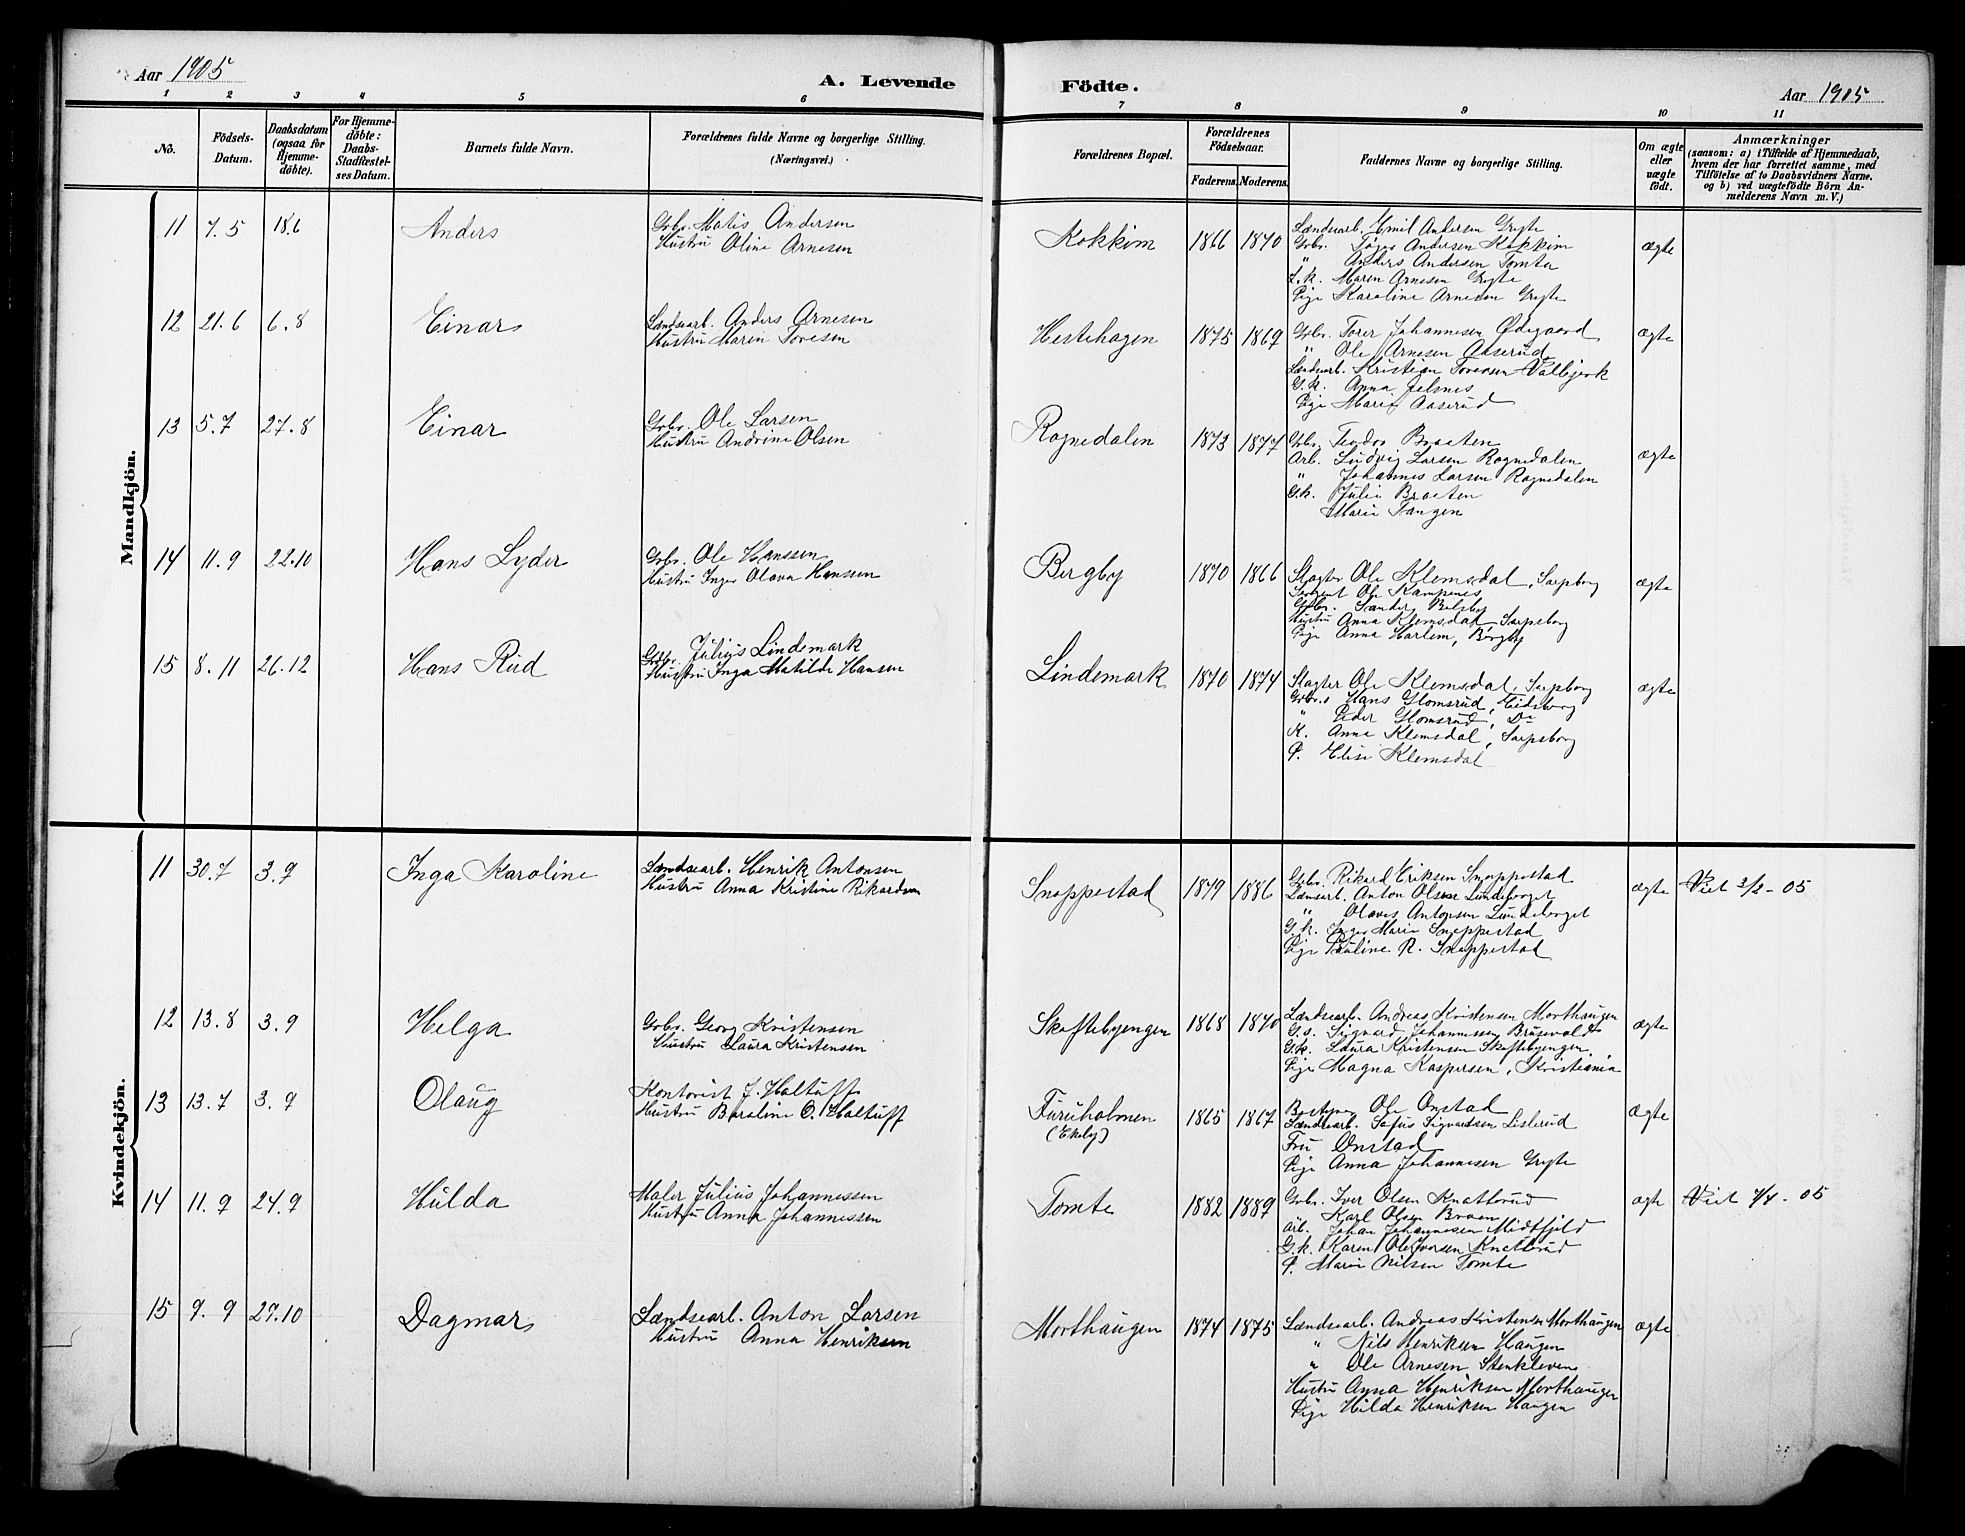 Aar 1905
A. Levende
Födte.
Aar 1905
1 2 3 4 5 6 7 8 9 10 11
No.
Födsels-Datum.
Daabsdatum (ogsaa for Hjemme-döbte).
For Hjemme-döbte: Daabs-Stadfæstel-ses Datum.
Barnets fulde Navn.
Forældrenes fulde Navne og borgerlige Stilling.
(Næringsvei.)
Forældrenes Bopæl.
Forældrenes Födselsaar.
Faderens. Moderens.
Faddernes Navne og borgerlige Stilling.
Om ægte eller uægte födt.
Anmærkninger
(saasom: a) i Tilfælde af Hjemmedaab, hvem der har forrettet samme, med Tilföielse af to Daabsvidners Navne, og b) ved uægtefödte Börn An-melderens Navn m. V.)
Mandkjön.
11 7.5 18.6 Anders
Grbr. Matis Andersen
Hustru Oline Arnesen
Kokkim 1866 1870
Landsearb. Emil Andersen Grefte
Grbr. Andersen Kokkim
" Anders Andersen Tomter
G.k. Maren Arnesen Grefte
Pige Karoline Arnesen Grefte
ægte
12 21.6 6.8 Einar
Landsearb. Anders Arnesen
Hustru Maren Toresen
Hestehagen 1875 1869
Grbr. Torer Johannesen Ødegaard
" Ole Arnesen Aaserud
Landsearb. Kristian Toresen Valbjerk
G.k. Anna Jelsnes
Pige Marie Aaserud
ægte
13 5.7 27.8 Einar
Grbr. Ole Larsen
Hustru Andrine Olsen
Rognedalen 1873 1877
Grbr. Teodor Braaten
Arb. Ludvig Larsen Rognedalen
" Johannes Larsen Rognedalen
G.k. Julie Braaten
Marie Tangen
ægte
14 11.9 22.10 Hans Lyder
Grbr. Ole Hanssen
Hustru Inger Olava Hansen
Bergby 1870 1866
Slagter Ole Klemsdal, Sarpborg
Sergent Ole Kampenes
Grbr. Sander Belsby
Hustru Anna Klemsdal Sarpsborg
Pige Anna Harlem, Børgby
ægte
15 8.11 26.12 Hans Rud
Grbr. Julius Lindemark
Hustru Inga Matilde Hansen
Lindemark 1870 1874
Slagter Ole Klemsdal, Sarpsborg
Grbr. Hans Glomsrud, Eidsberg
" Peder Glomsrud, Do
K. Anna Klemsdal, Sarpsborg
P. Elise Klemsdal
ægte
Kvindekjön.
11 30.7 3.9 Inga Karoline
Landsearb. Henrik Antonsen
Hustru Anna Kristine Rikardsen
Snoppestad 1879 1886
Grbr. Rikard Eriksen Snoppestad
Lansearb. Anton Olsen Lundeborget
" Olaves Antonsen Lundeborget
G.k. Inger Marie Snoppestad
Pige Pauline R. Snoppestad
ægte
Viet 3/2 - 05
12 13.8 3.9 Helga
Grbr. Georg Kristensen
Hustru Laura Kristensen
Skoftebyengen 1868 1870
Landsearb. Andreas Kristensen Morthaugen
G.s. Sigvard Johannessen Brusevold
G.k. Laura Kristensen Skoftebyengen
Pige Magna Kaspersen, Kristiania
ægte
13 13.7 3.9 Olaug
Kontorist J. Holtuff
Hustru Beroline O. Holtuff
Furuholmen
(Ekely)
1865 1867
Bestyrer Ole Onstad
Landsearb. Sofus Sigvardsen Lislerud
Fru Onstad
Pige Anna Johannesen Grefte
ægte
14 11.9 24.9 Hulda
Maler Julius Johannessen
Hustru Anna Johannessen
Tomte 1882 1889
Grbr. Iver Olsen Knatterud
" Karl Olsen Braaen
Arb. Johan Johannesen Midtfjeld
G.k. Karen Oline Iversen Knatterud
P. Marie Nilsen Tomte
ægte
Viet 4/4 - 05
15 9.9 29.10 Dagmar
Landsearb. Anton Larsen
Hustru Anna Henriksen
Morthaugen 1874 1875
Landsearb. Andreas Kristensen Morthaugen
" Nils Henriksen Haugen
" Ole Arnesen Stenkleven
Hustru Anna Henriksen Morthaugen
Pige Hilda Henriksen Haugen
ægte